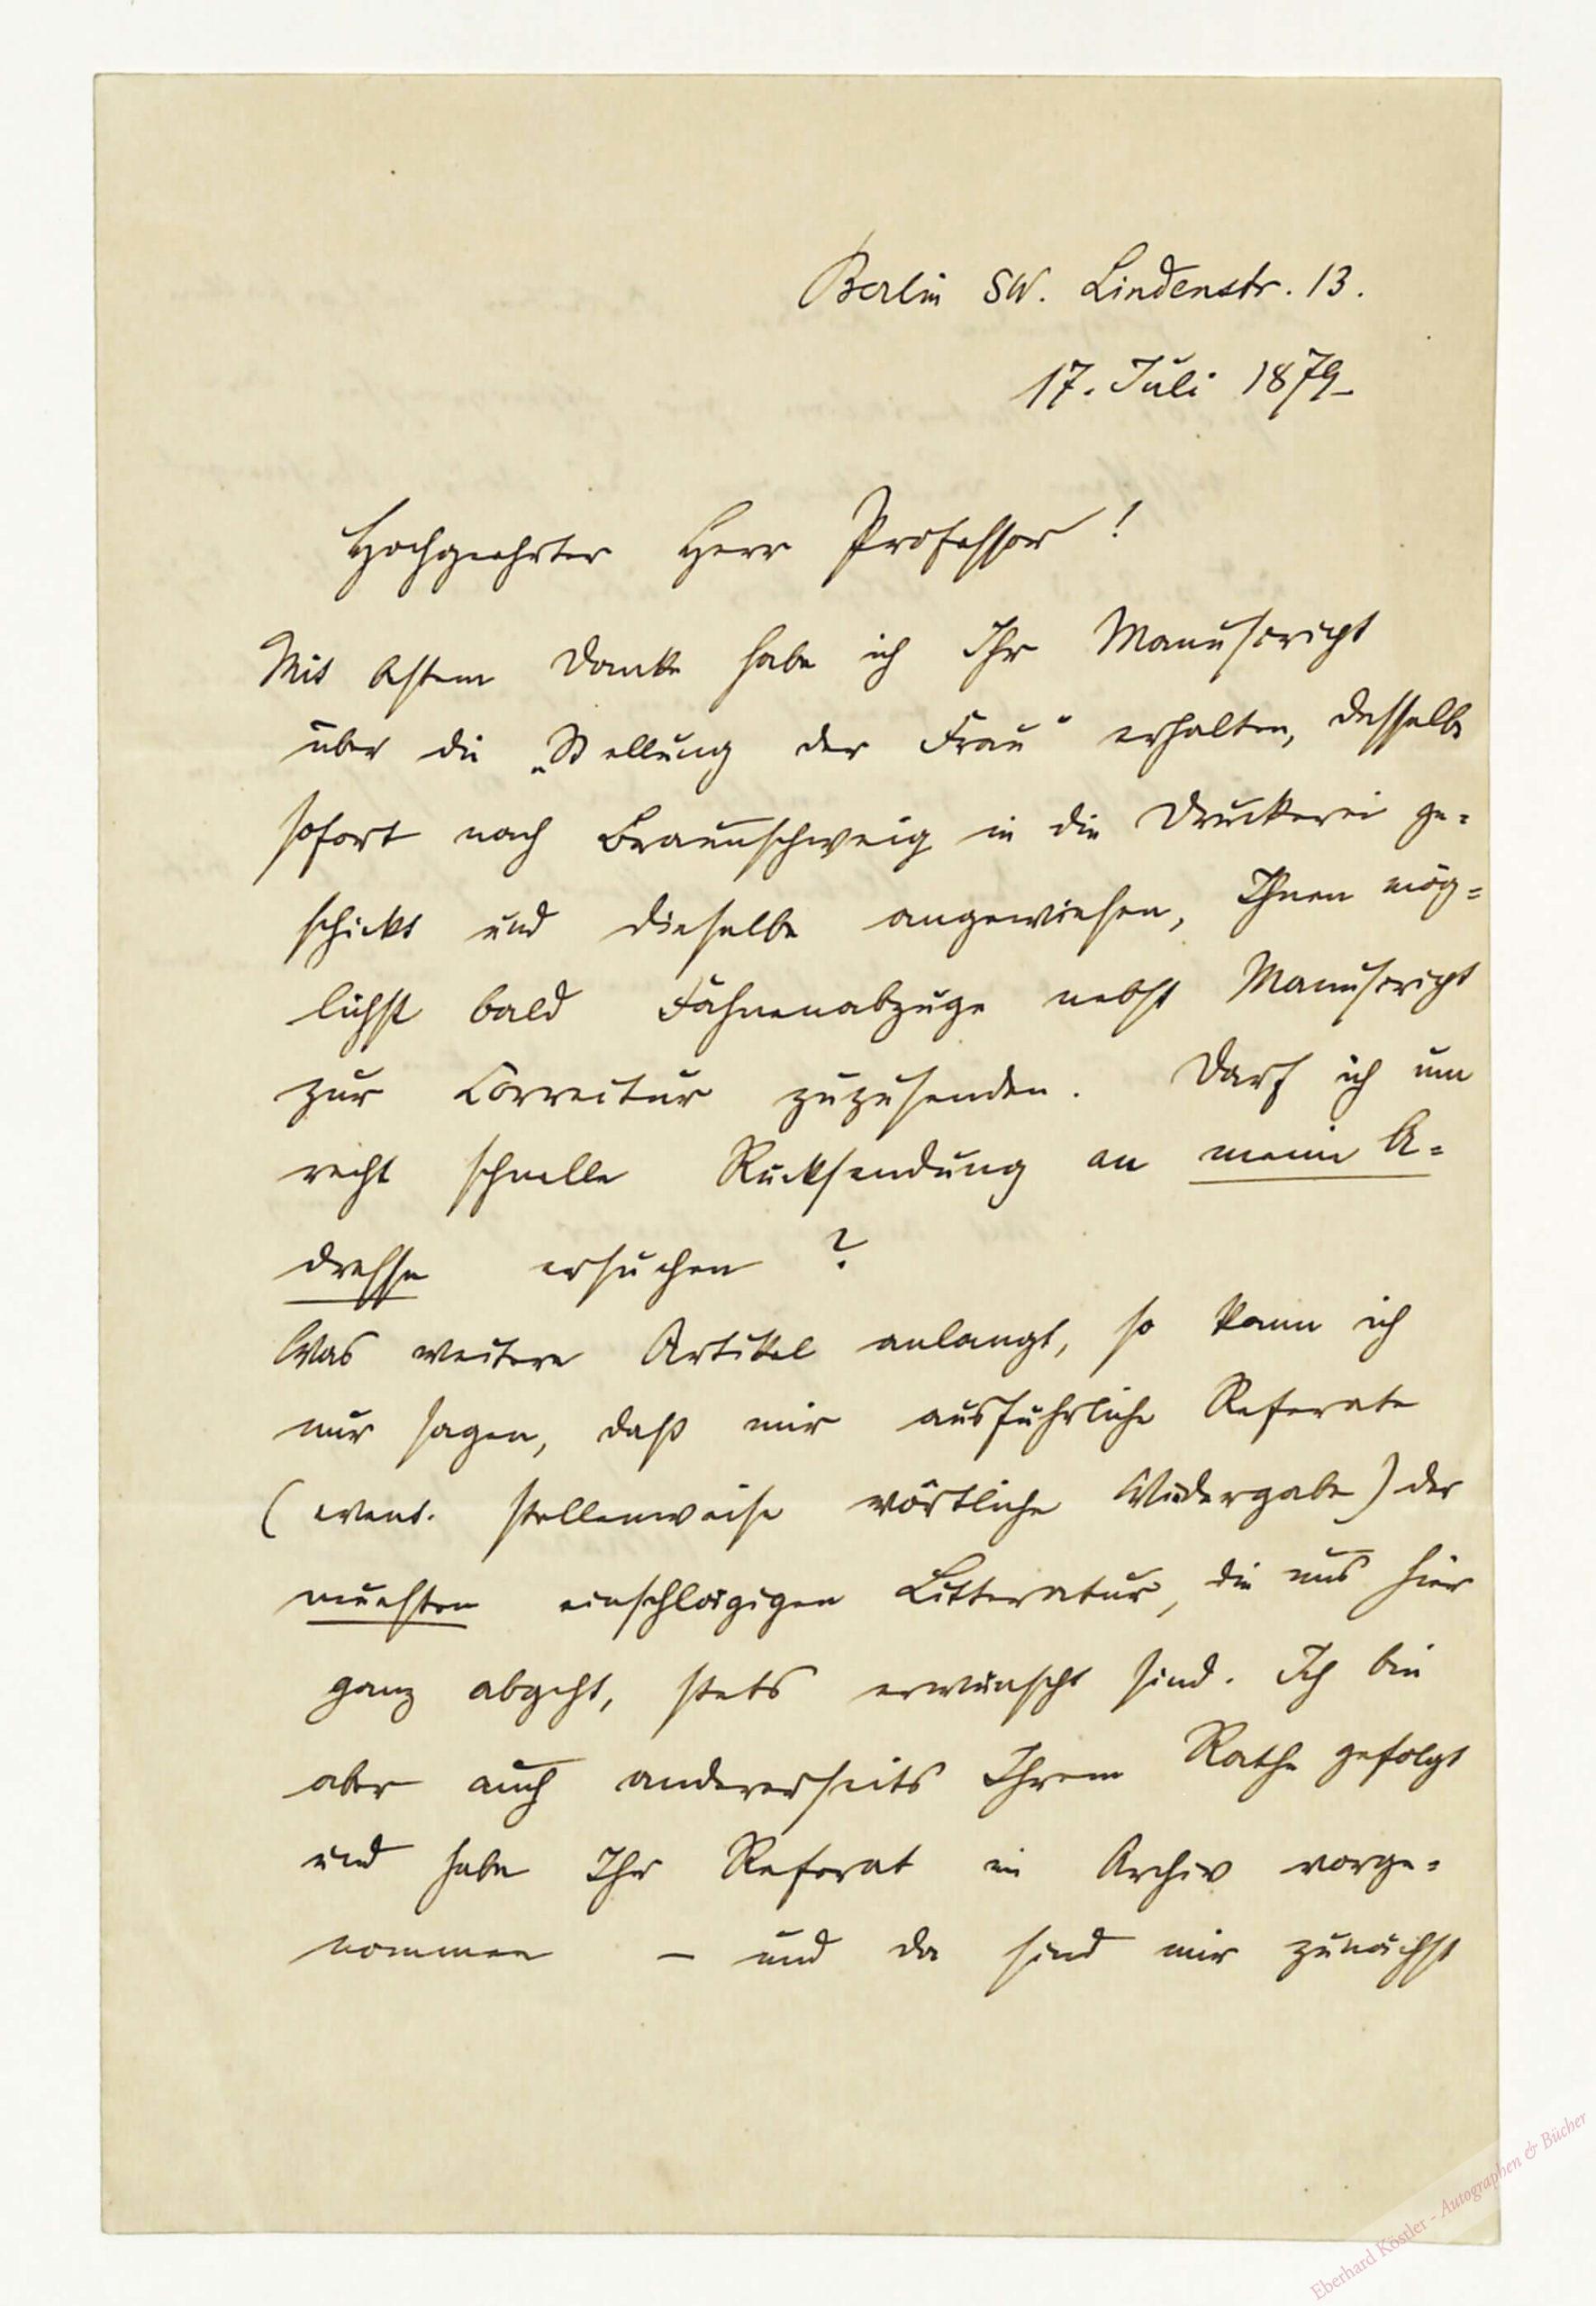 Berlin SW. Lindenstr. 13.
17. Juli 1879
Hochgeehrter Herr Professor!
Mit bestem Danke habe ich Ihr Manuscript
über die „Stellung der Frau“ erhalten, dasselbe
sofort nach Braunschweig in die Druckerei ge=
schickt und dieselbe angewiesen, Ihnen mög=
lichst bald Fahnenabzüge nebst Manuscript
zur Correctur zuzusenden. Darf ich um
recht schnelle Rücksendung an meine A=
dresse ersuchen?
Was weitere Artikel anlangt, so kann ich
nur sagen, daß mir ausführliche Referate
(event. stellenweise wörtliche Wiedergabe) der
neuesten einschlägigen Litteratur, die uns hier
ganz abgeht, stets erwünscht sind. Ich bin
aber auch andererseits Ihrem Rathe gefolgt
und habe Ihr Referat im Archiv vorge=
nommen – und da sind mir zunächst
Eberhard Köstler - Autographen & Bücher